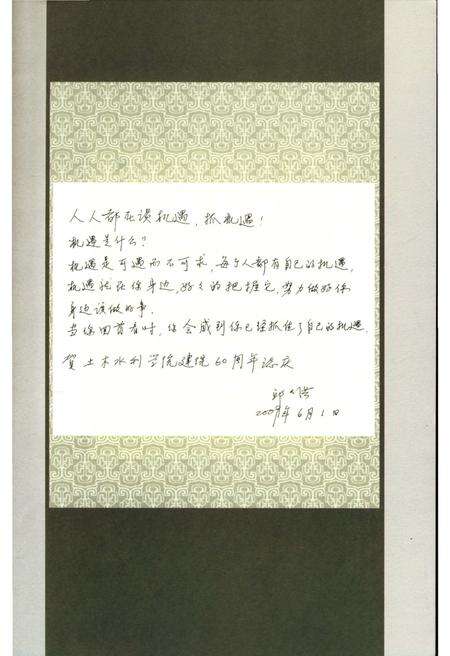 人人都在谈机遇，抓机遇！
机遇是什么？
机遇是可遇而不可求，每个人都有自己的机遇，
机遇就在你身边，好好的把握它，努力做好你
身边该做的事．
当你回首看时，你会感到你已经抓住了自己的机遇．
贺土木水利学院建院60周年院庆
邱大洪
2009年6月1日